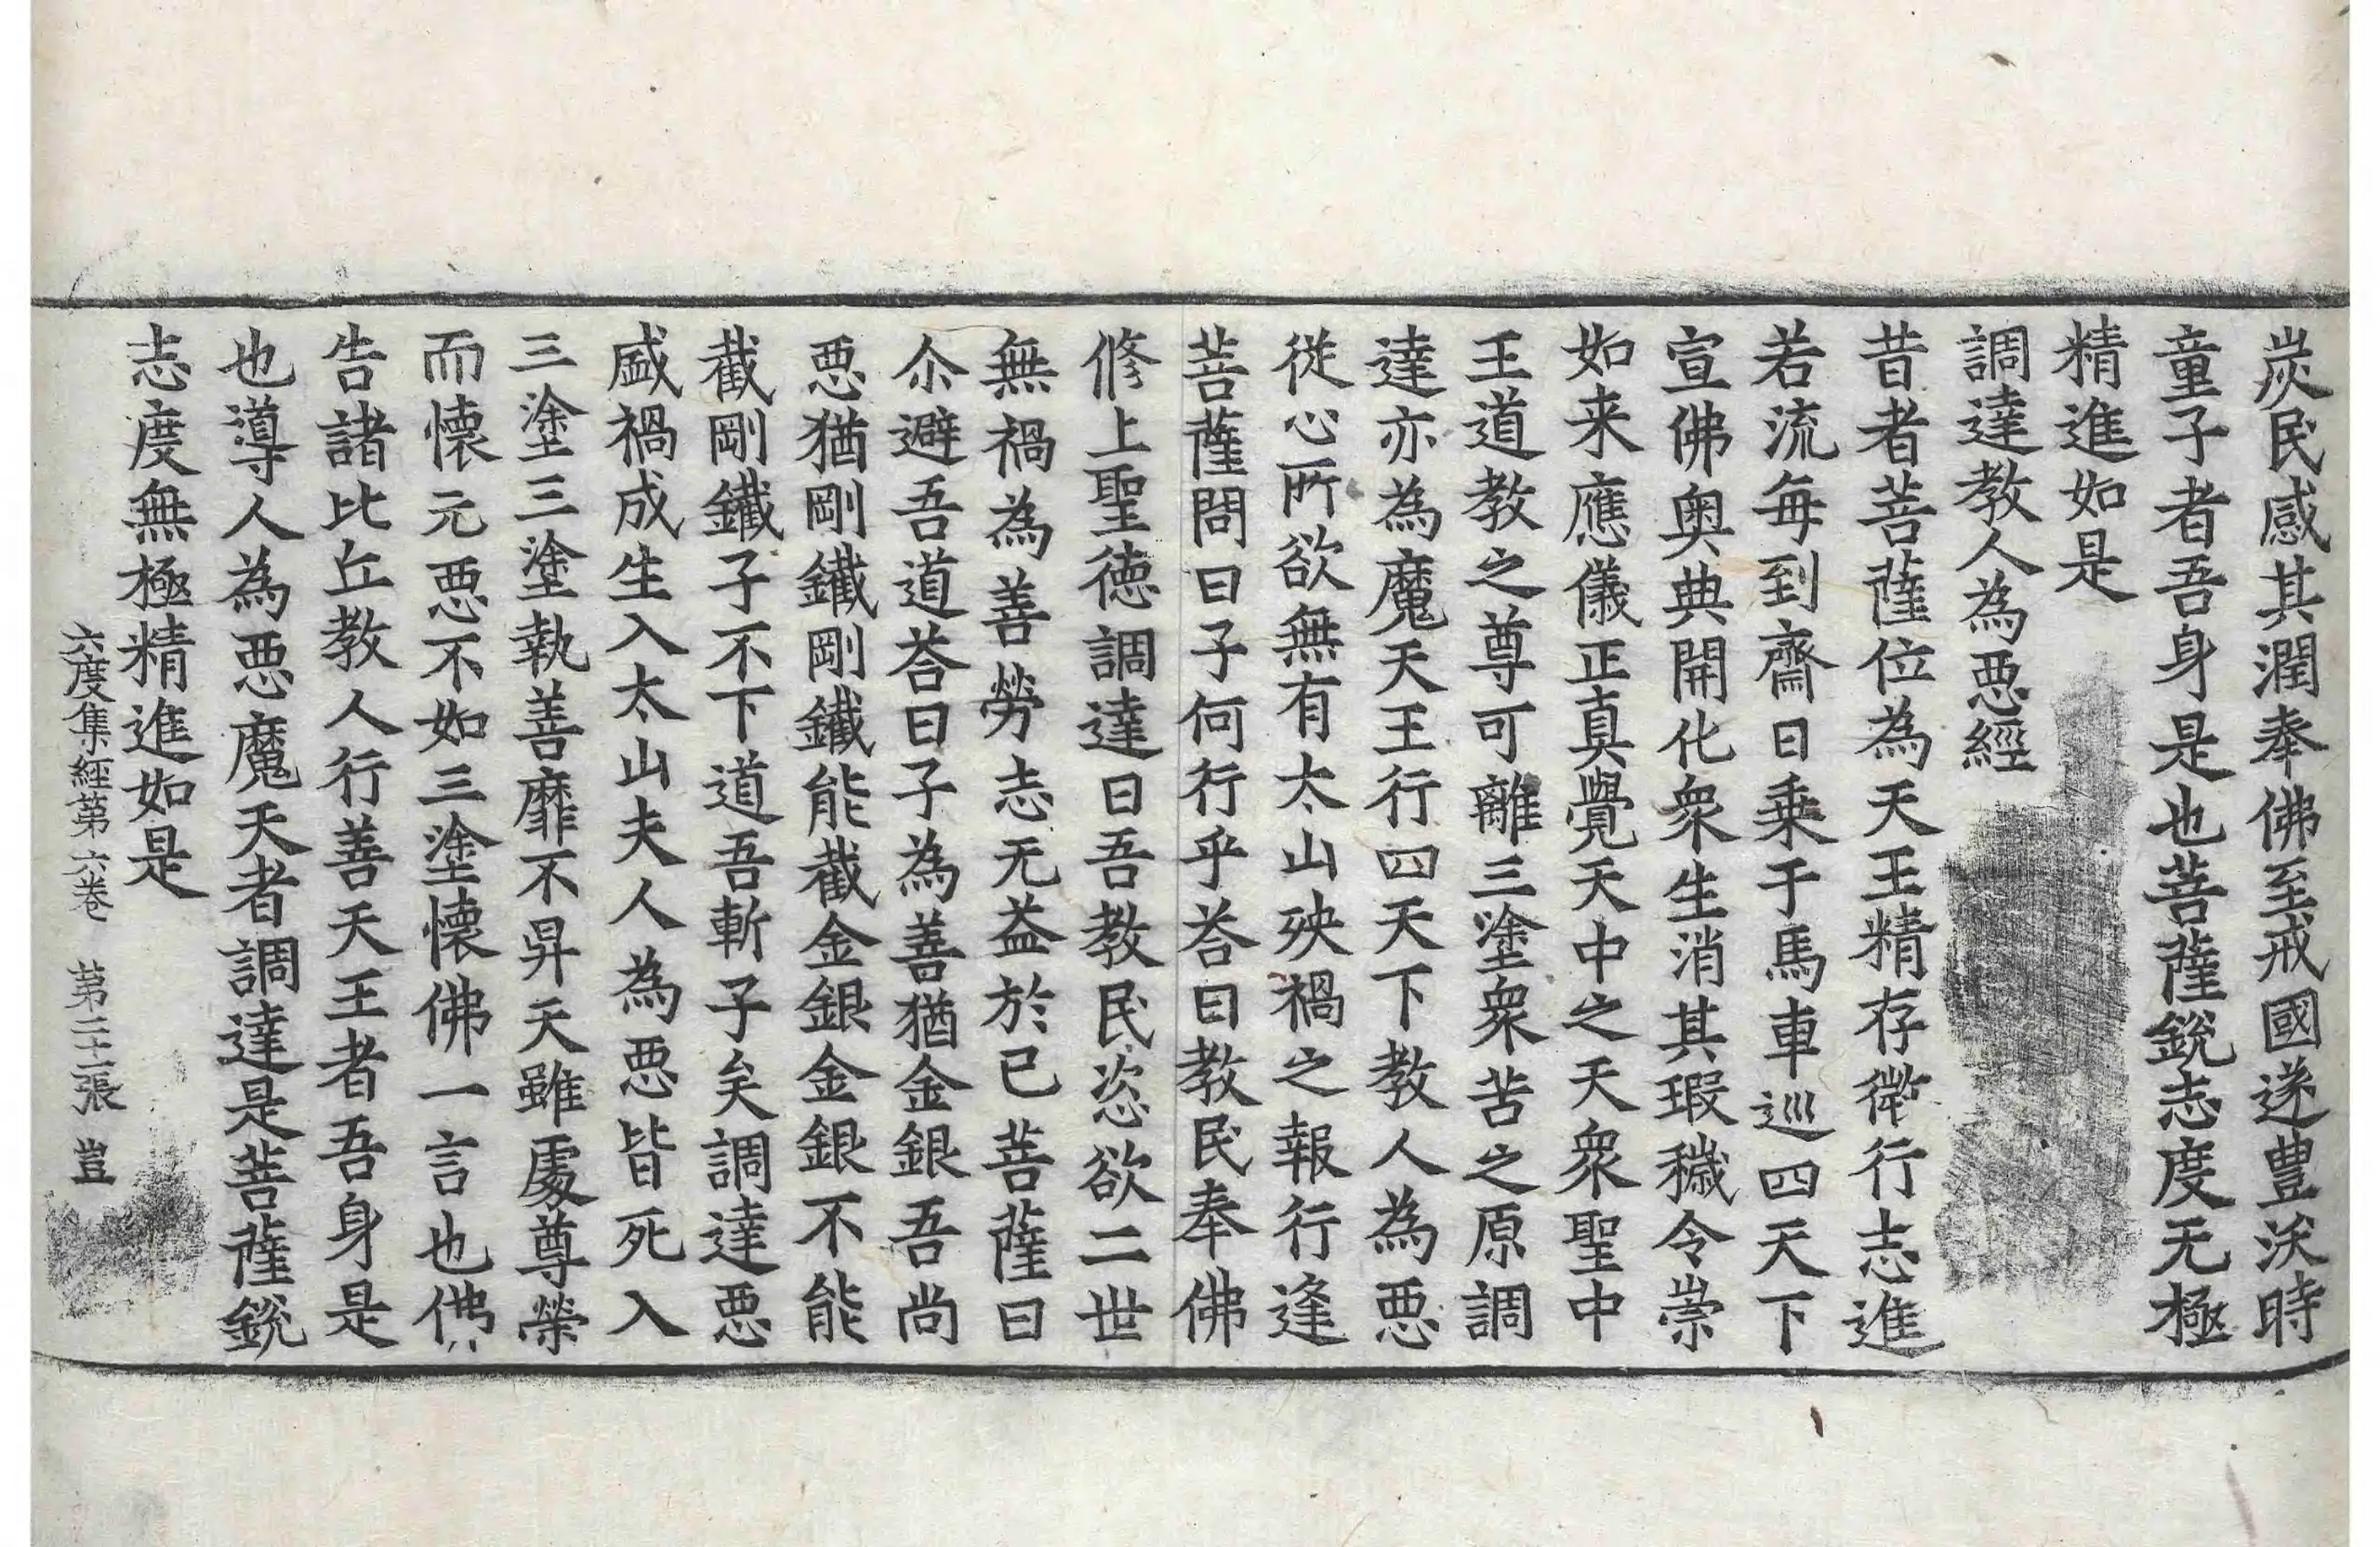 炭民感其潤奉佛至戒國遂豊沃時
童子者吾身是也菩薩銳志度无極
精進如是
調達教人為悪經
昔者菩薩位為天王精存微行志進
若流每到齋日乗于馬車巡四天下
宣佛奥典開化衆生消其瑕穢令崇
如来應儀正真覺天中之天衆聖中
王道教之尊可離三塗衆苦之原調
達亦為魔天王行四天下教人為悪
從心所欲無有太山殃禍之報行逢
菩薩問曰子何行乎荅曰教民奉佛
修上聖德調達曰吾教民恣欲二世
無禍為善勞志无益於已菩薩曰
尒避吾道荅曰子為善猶金銀吾尚
悪猶剛鐵剛鐵能截金銀金銀不能
截剛鐵子不下道吾斬子矣調達悪
盛禍成生入太山夫人為悪皆死入
三塗三塗執善靡不昇天雖處尊榮
而懐元悪不如三塗懐佛一言也佛
告諸比丘教人行善天王者吾身是
也導人為悪魔天者調達是菩薩銳
志度無極精進如是
六度集經第六卷 第二十二張 豈